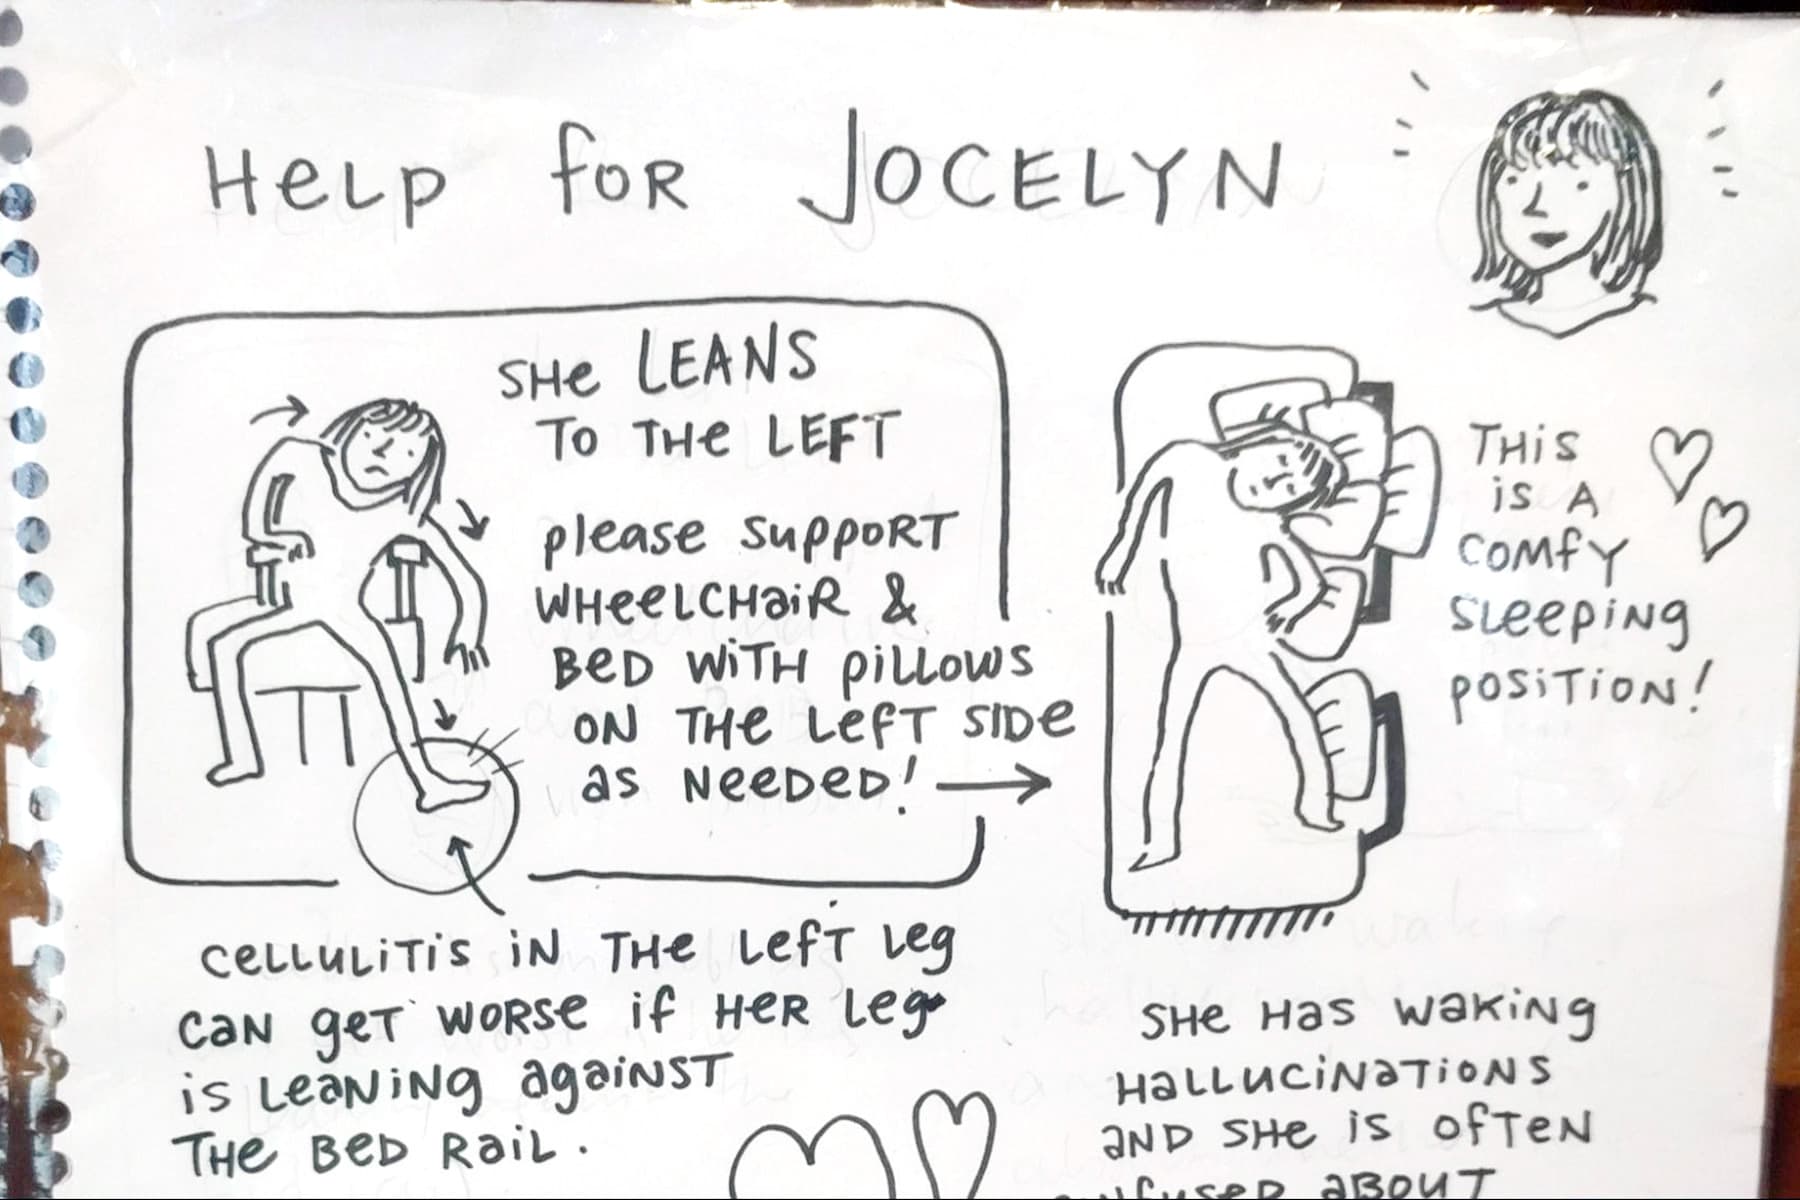 HeLp foR JOCELYN
SHe LEANS
TO THe LEFT
please suppoRT
WHeeLCHaiR &
BeD WiTH piLLOWS
ON THe LefT SIDe
as NeeDeD! →
THiS
iS A
COMfY
SLeepiNg
pOSiTiON!
CeLLULiTiS iN THe LefT Leg
CaN geT WORSe if HeR Leg
iS LeaNiNg agaiNST
THe BeD RaiL.
SHe HaS WaKiNg
HaLLUCiNaTiONS
aND SHe iS OfTeN
aBOUT